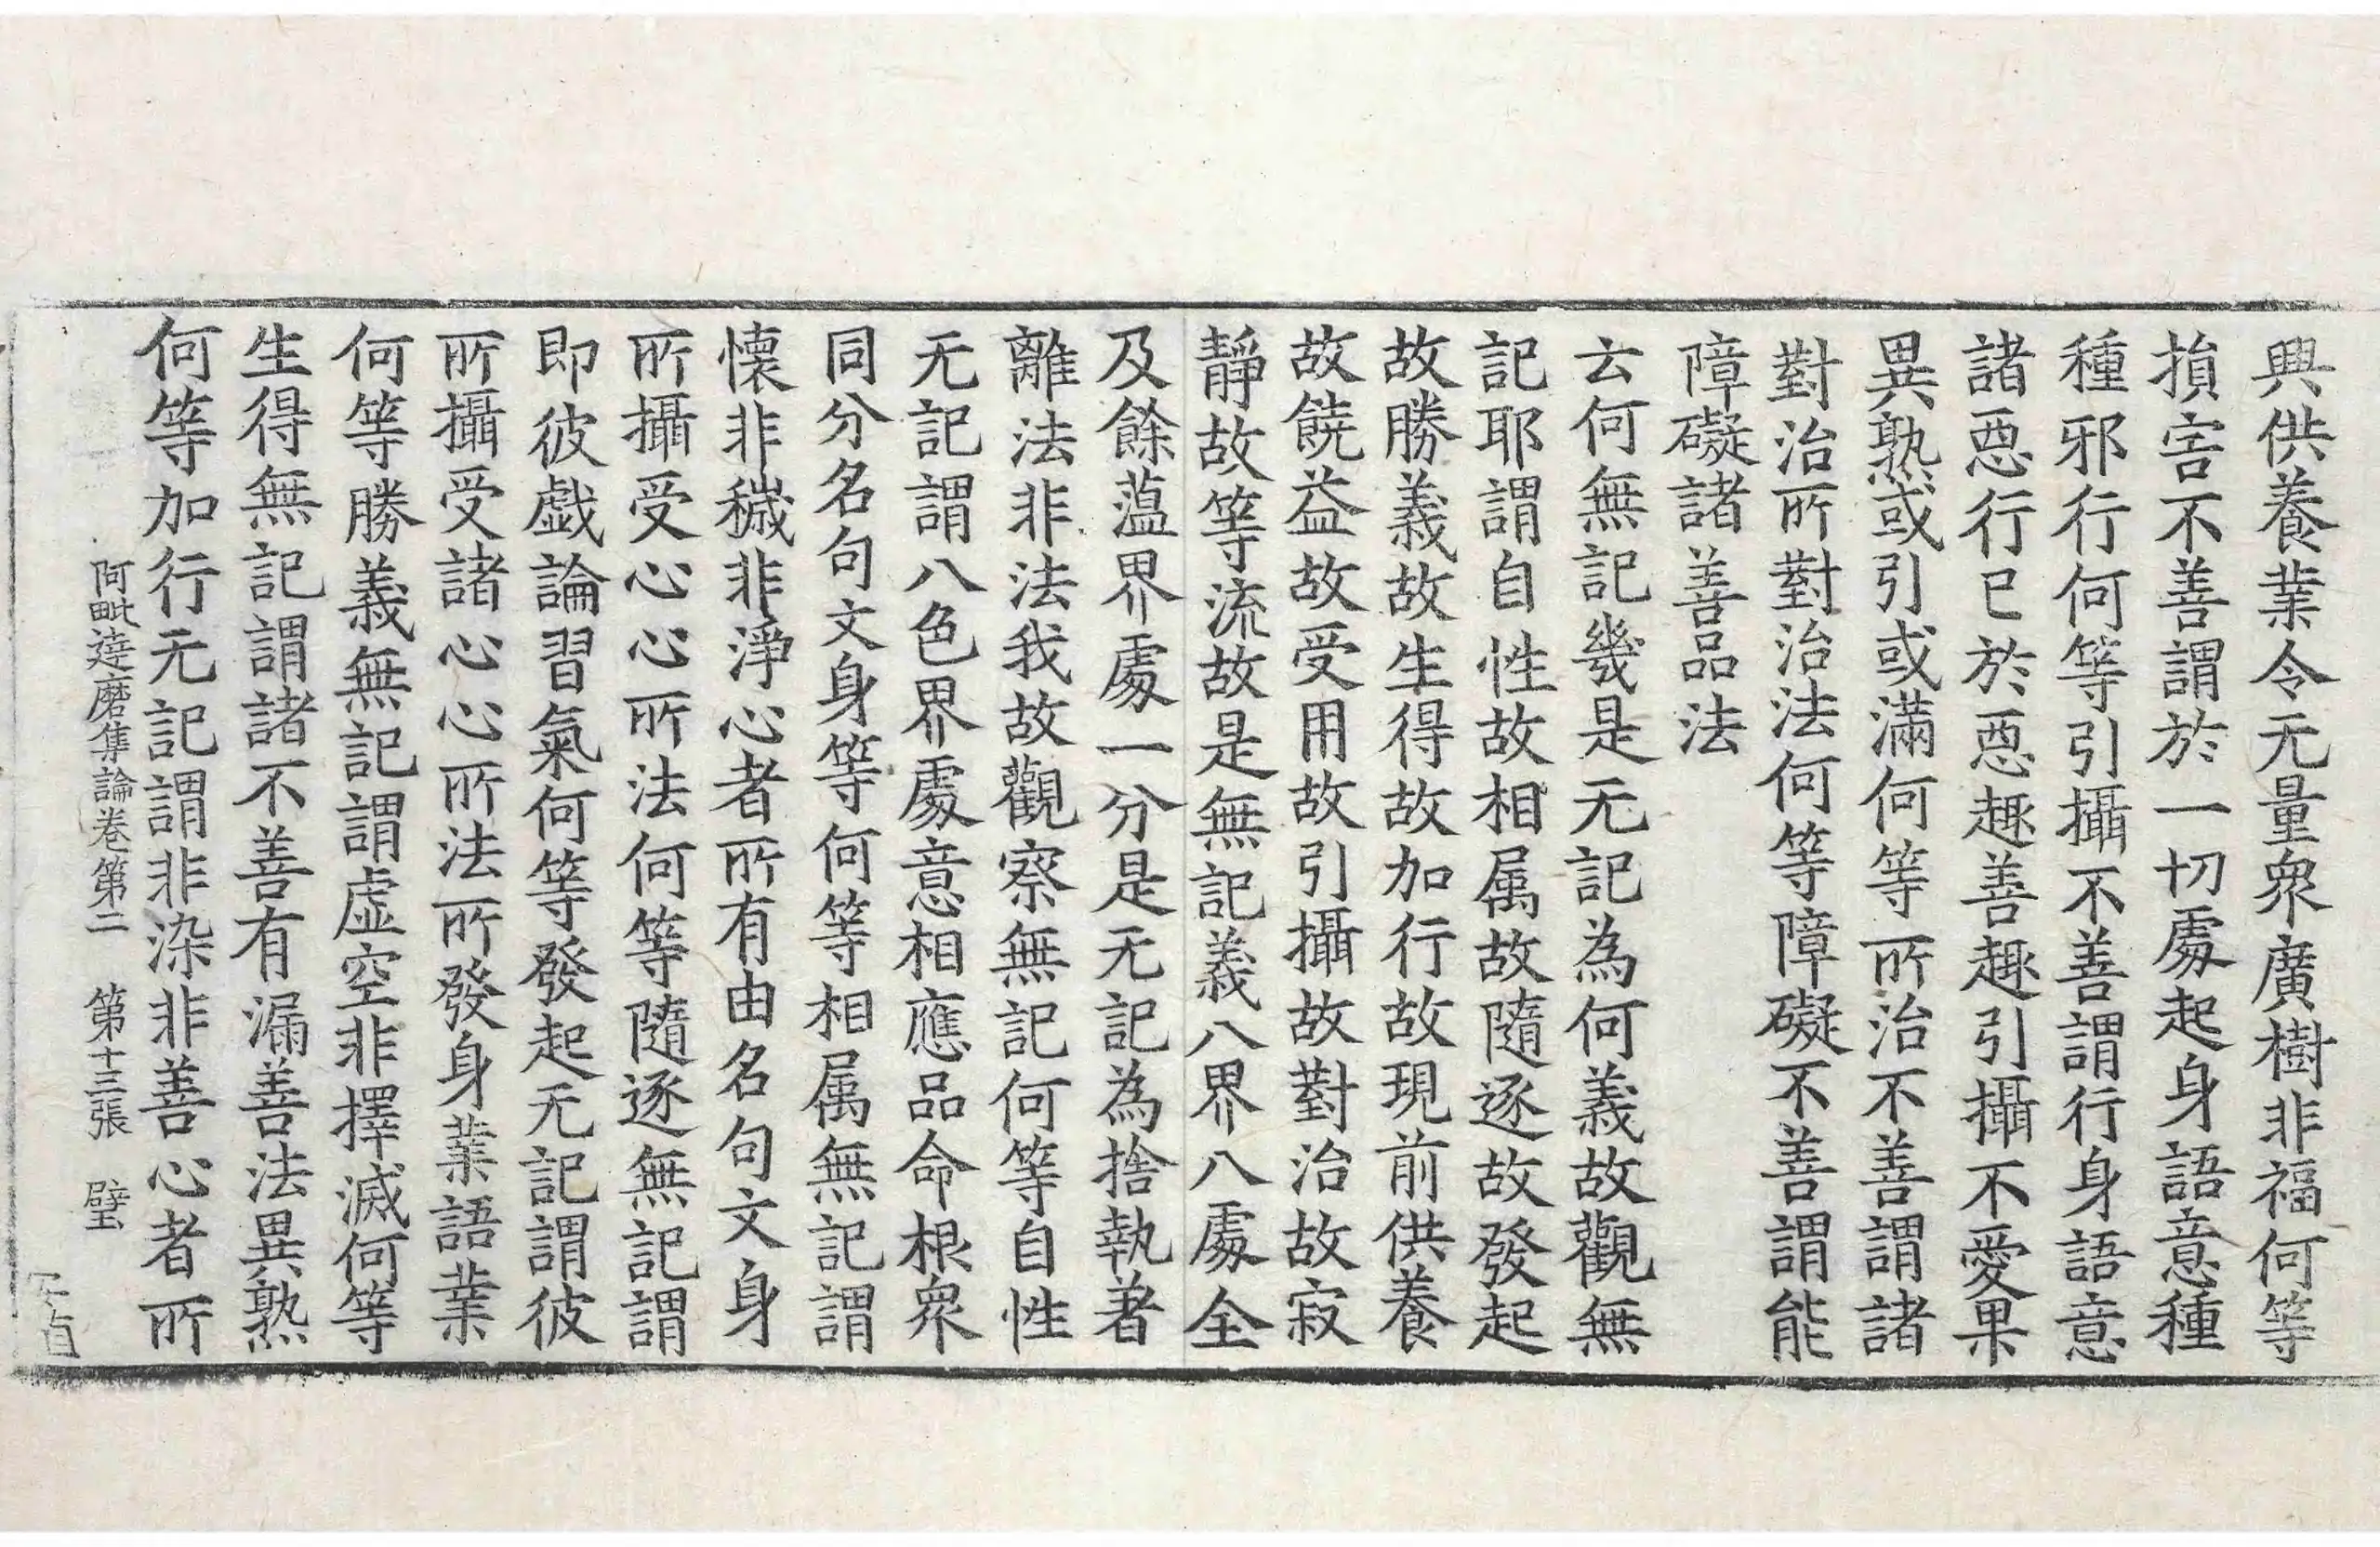 興供養業令无量衆廣樹非福何等
損害不善謂於一切處起身語意種
種邪行何等引攝不善謂行身語意
諸惡行已於惡趣善趣引攝不愛果
異熟或引或滿何等所治不善謂諸
對治所對治法何等障礙不善謂能
障礙諸善品法
云何無記幾是无記為何義故觀無
記耶謂自性故相属故隨逐故發起
故勝義故生得故加行故現前供養
故饒益故受用故引攝故對治故寂
靜故等流故是無記義八界八處全
及餘薀界處一分是无記為捨執著
離法非法我故觀察無記何等自性
无記謂八色界處意相應品命根衆
同分名句文身等何等相属無記謂
懷非穢非淨心者所有由名句文身
所攝受心心所法何等隨逐無記謂
即彼戲論習氣何等發起无記謂彼
所攝受諸心心所法所發身業語業
何等勝義無記謂虛空非擇滅何等
生得無記謂諸不善有漏善法異熟
何等加行无記謂非染非善心者所
阿毗達磨集論卷第二 第十三張 璧